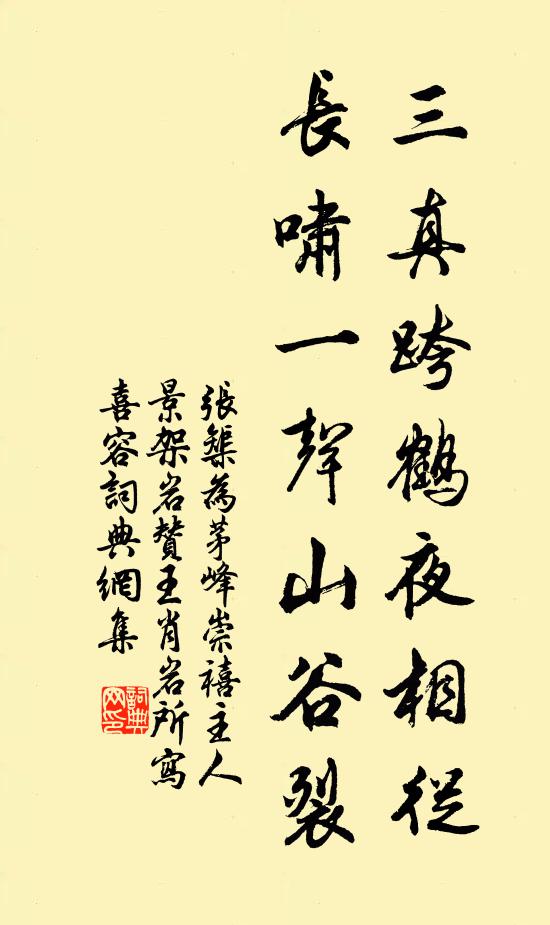 三真跨鶴夜相從
長嘯一聲山谷裂
張榘為茅峰崇禧主人
景架岩贊王肖岩所寫
喜容詞典網集
詞典网印